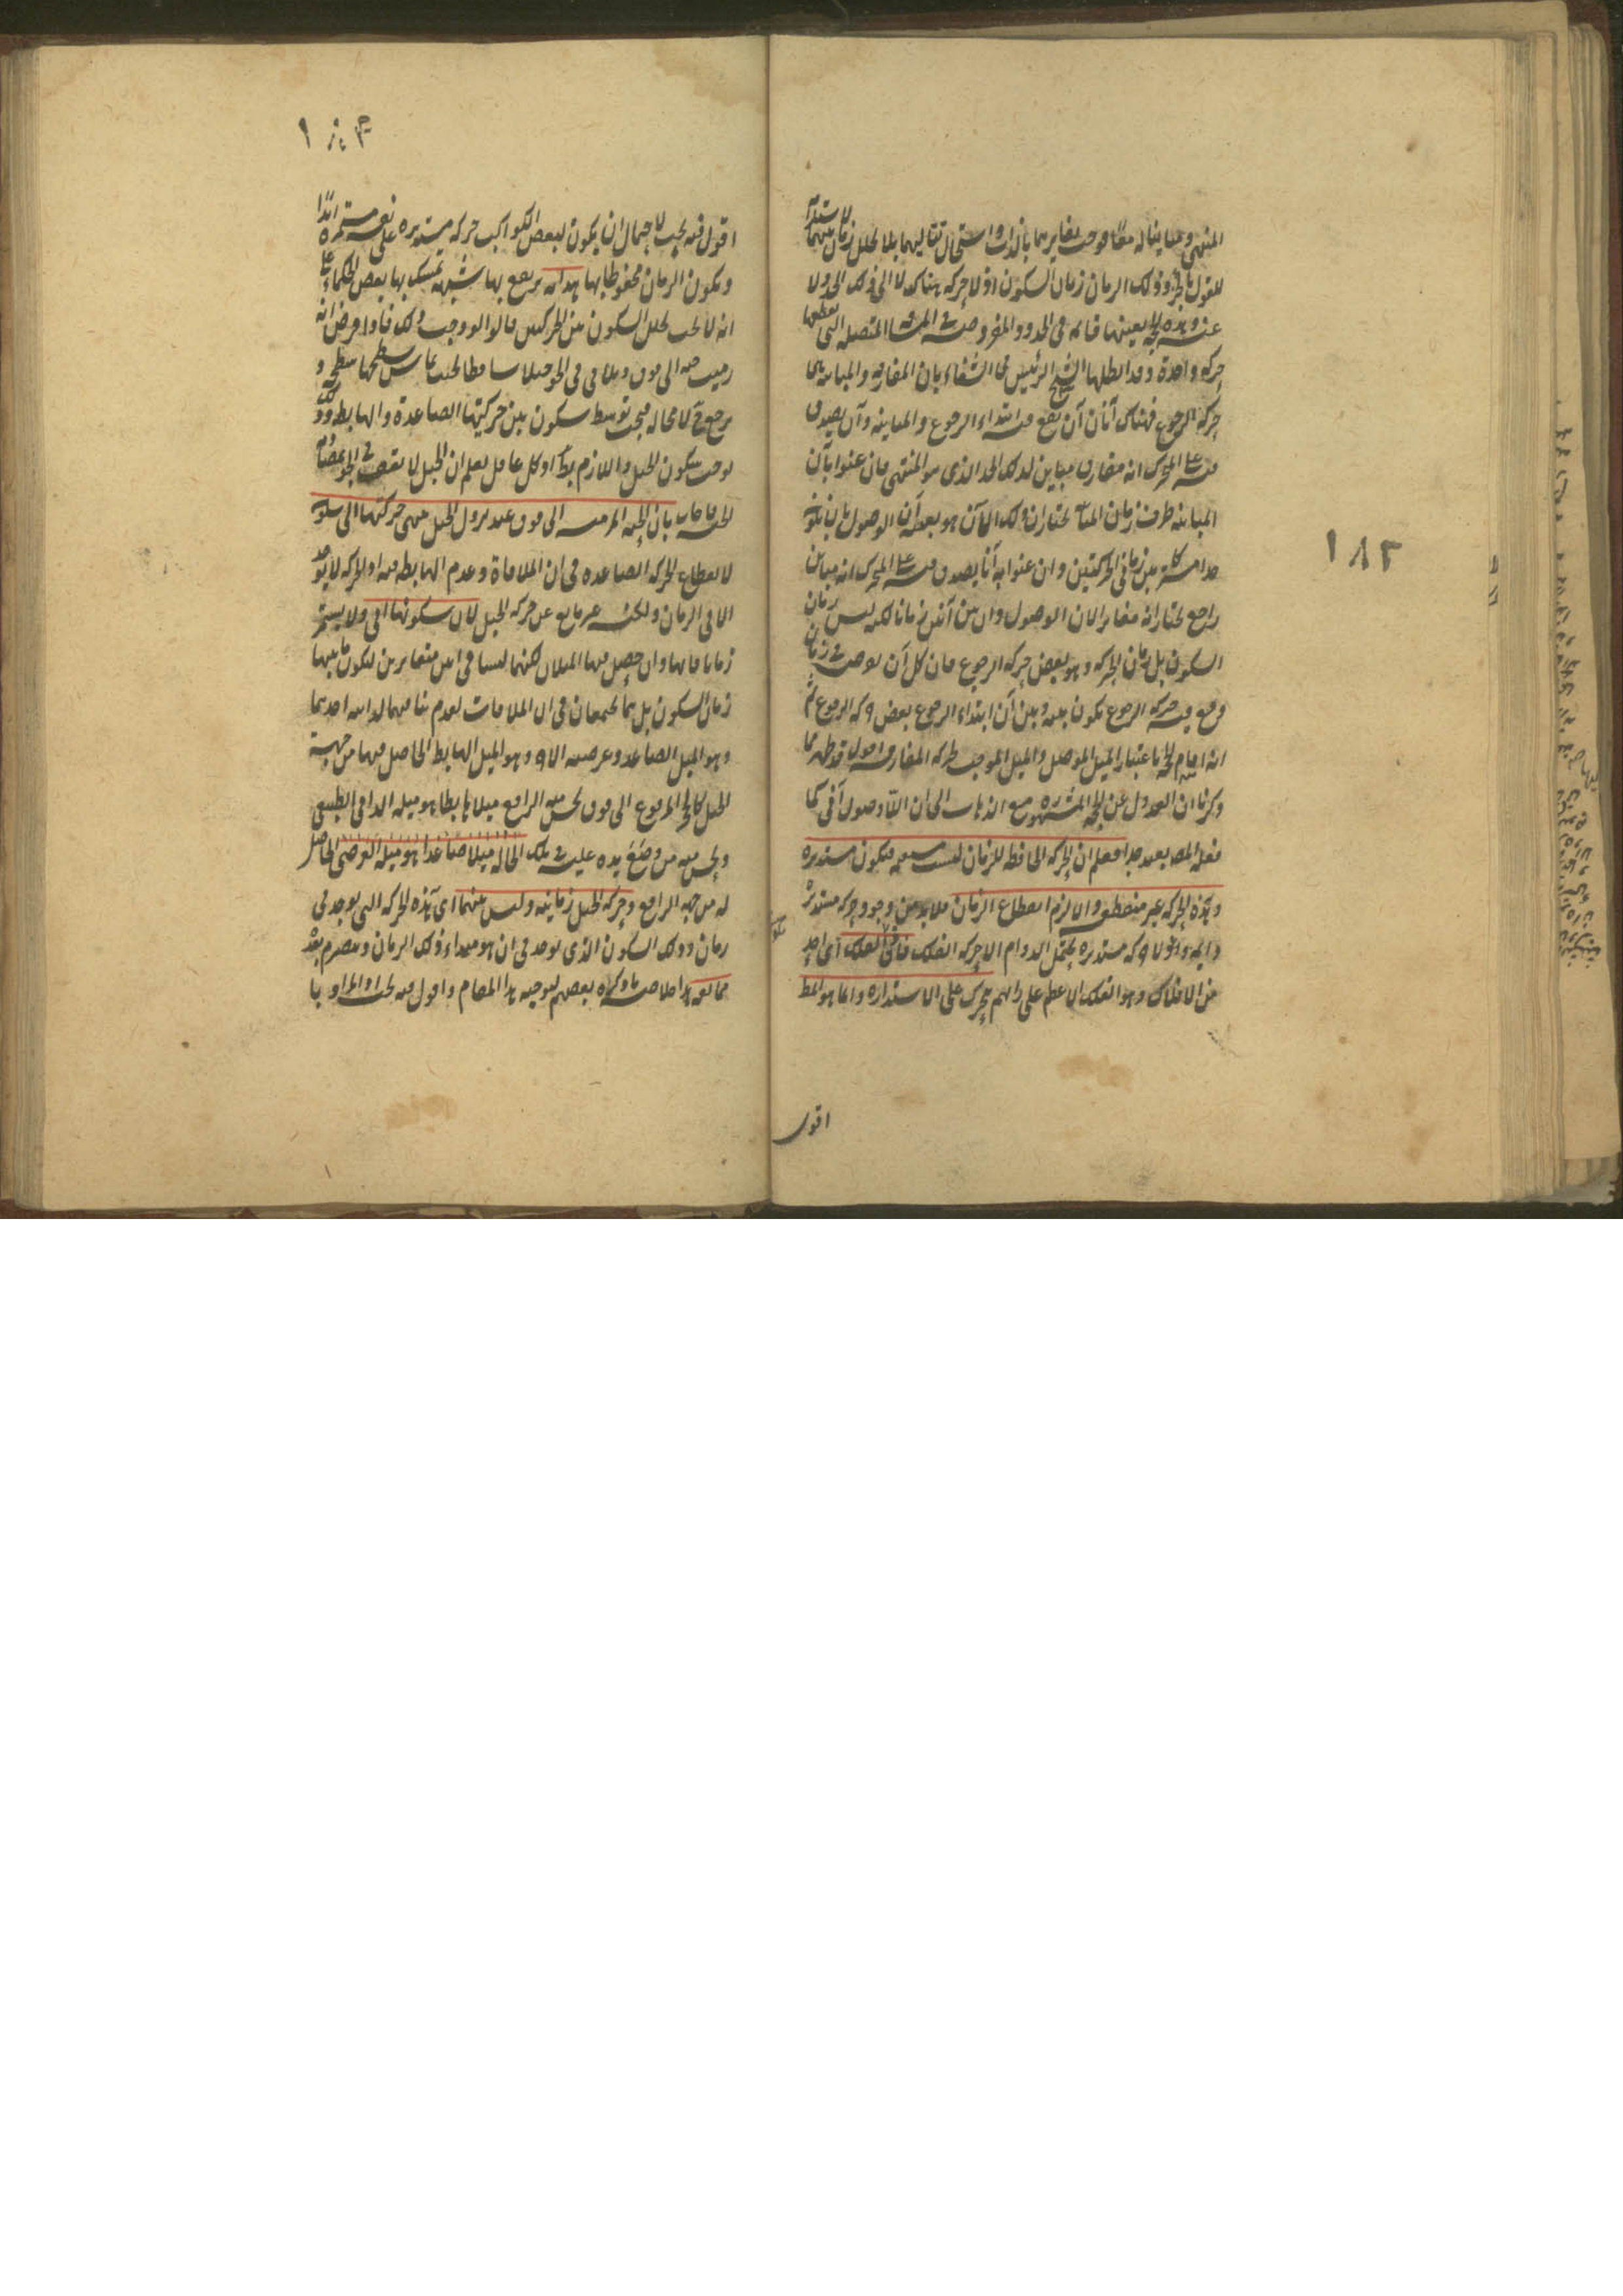 المنتهى ومباينا له معا فوجب تغايرهما بالذات واستحال تتاليهما بلا تخلل زمان بينهما لاستلزامه
للقول بالجزء وذلك الزمان زمان السكون اذ لا حركة هناك لا الى ذلك الحد ولا
عنه وهذه الحجة بعينها قائمة في الحدود المفروضة في المسافة المتصلة التي يقطعها
حركة واحدة وقد ابطلها الشيخ الرئيس في الشفاء بان المفارقة والمباينة هي
حركة الرجوع فهناك آنان آن يقع فيه ابتداء الرجوع والمباينة وآن يصدق
فيه على المتحرك انه مفارق مباين لذلك الحد الذي هو المنتهى فان عنوا بآن
المباينة طرف زمان المباينة نختار ان ذلك الآن هو بعينه آن الوصول بان يكون
حدا مشتركا بين زماني الحركتين وان عنوا به آنا يصدق فيه على المتحرك انه مباين
راجع نختار انه مغاير لان الوصول وان بين آنين زمانا لكنه ليس زمان
السكون بل زمان الحركة وهو بعض حركة الرجوع فان كل آن يوجد في زمان
وقع فيه حركة الرجوع يكون بينه وبين آن ابتداء الرجوع بعض حركة الرجوع ثم
انه اقام الحجة باعتبار الميل الموصل والميل الموجب لحركة المفارقة اقول قد ظهر مما
ذكرنا ان العدول عن الحجة المشهورة مع الذهاب الى ان اللاوصول آني كما
فعله المصنف بعيد جدا فعلم ان الحركة الحافظة للزمان ليست مستقيمة فيكون مستديرة
وهذه الحركة غير منقطعة والا لزم انقطاع الزمان فلا بد من وجود حركة مستديرة
دائمة واذ لا حركة مستديرة يحتمل الدوام الا حركة الفلك فاذن الفلك اى احد
من الافلاك وهو الفلك الاعظم على رايهم يتحرك على الاستدارة دائما هو المط
اقول
١٨٣
اقول فيه بحث لاحتمال ان يكون لبعض الكواكب حركة مستديرة على نفسه مستمرة ابدا
ويكون الزمان محفوظا بها هداية يرفع بها شبهة تمسك بها بعض الحكماء على
انه لا يجب تخلل السكون بين الحركتين قالوا لو وجب ذلك فاذا فرض انه
رميت حبة الى فوق وتلاقى في الجو جبلا ساقطا بحيث يماس سطحها سطحه و
يرجع ح لا محالة فيجب توسط سكون بين حركتيها الصاعدة والهابطة
يوجب سكون الجبل واللازم بط اذ كل عاقل يعلم ان الجبل لا يقف في الجو بمصادمة
الحبة فاجاب بان الحبة المرمية الى فوق عند نزول الجبل ينتهى حركتها الى سكون
لانقطاع الحركة الصاعدة في آن الملاقاة وعدم الهابطة فيه اذ الحركة لا يوجد
الا في الزمان ولكنه غير مانع عن حركة الجبل لان سكونها آني ولا يستمر
زمانا فانها وان حصل فيها الميلان لكنهما ليسا في آنين متغايرين ليكون ما بينهما
زمان السكون بل هما يجتمعان في آن الملاقات لعدم تنافيهما لذاتية احدهما
وهو الميل الصاعد وعرضية الآخر وهو الميل الهابط الحاصل فيها من جهة
الجبل كالحجر المرفوع الى فوق يحس منه الرافع ميلا هابطا هو ميله الذاتي الطبيعي
ويحس منه من وضع يده عليه في تلك الحالة ميلا صاعدا هو ميله العرضي الحاصل
له من جهة الرافع وحركة الجبل زمانية وليس بينهما اى هذه الحركة التي يوجد في
زمان وذلك السكون الذي يوجد في آن هو مبداء ذلك الزمان وينصرم بعده
ممانعة هذا خلاصة ما ذكره بعضهم لتوجيه هذا المقام واقول فيه بحث اذ المراد با